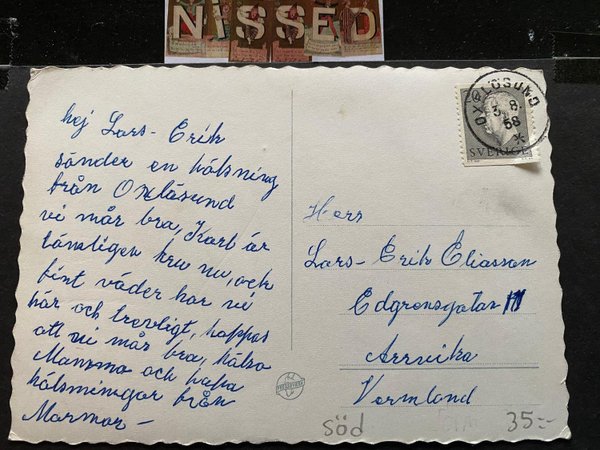 NISSED
hej Lars-Erik
sänder en hälsning
från Oxläsund
vi mår bra, Karl är
tämligen kru nu, och
fint väder har vi
här och trevligt, hoppas
att ni mår bra, hälsa
Mamma och papa
hälsningar från
Mormor -
OXELÖSUND
3. 8.
58
SVERIGE
Herr
Lars-Erik Eliasson
Edgrensgatan 11
Arrvika
Vermland
söd
35:-